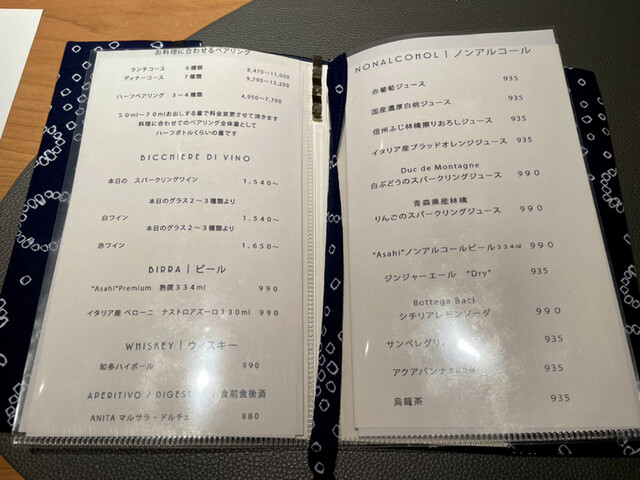 お料理に合わせるペアリング
ランチコース 6種類 8,470〜11,000
ディナーコース 7種類 9,790〜13,200
ハーフペアリング 3〜4種類 4,950〜7,700
50ml〜70mlお出しする量で料金変更させて頂きます
料理に合わせてのペアリング全体量として
ハーフボトルくらいの量です
BICCHIERE DI VINO
本日の スパークリングワイン 1,540〜
本日のグラス2〜3種類より
白ワイン 1,540〜
本日のグラス2〜3種類より
赤ワイン 1,650〜
BIRRA | ビール
"Asahi"Premium 熟撰334ml 990
イタリア産 ペローニ ナストロアズーロ330ml 990
WHISKEY | ウィスキー
知多ハイボール 990
APERITIVO / DIGESTIVO | 食前食後酒
ANITA マルサラ-ドルチェ 880
NONALCOHOL | ノンアルコール
赤葡萄ジュース 935
国産濃厚白桃ジュース 935
信州ふじ林檎擦りおろしジュース 935
イタリア産ブラッドオレンジジュース 935
Duc de Montagne
白ぶどうのスパークリングジュース 990
青森県産林檎
りんごのスパークリングジュース 990
"Asahi"ノンアルコールビール334ml 990
ジンジャーエール "Dry" 935
Bottega Baci
シチリアレモンソーダ 990
サンペレグリ 935
アクアパンナ 935
烏龍茶 935